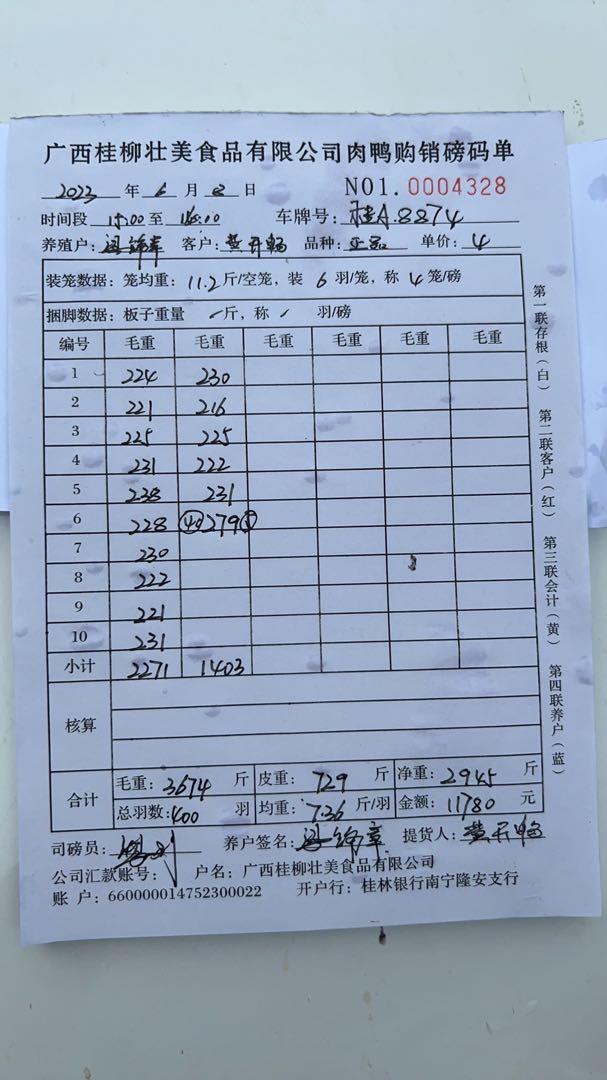 广西桂柳壮美食品有限公司肉鸭购销磅码单
2023 年 6 月 8 日 NO1.0004328
时间段 15:00 至 16:00 车牌号: 桂A.8874
养殖户: 客户: 黄开畅 品种: 正品 单价: 4
装笼数据: 笼均重: 11.2 斤/空笼, 装 6 羽/笼, 称 4 笼/磅
捆脚数据: 板子重量 斤, 称 羽/磅
编号 毛重 毛重 毛重 毛重 毛重 毛重
1 224 230
2 221 216
3 225 225
4 231 222
5 238 231
6 228 ㊵279⑤
7 230
8 222
9 221
10 231
小计 2271 1403
核算
合计 毛重: 3674 斤 皮重: 729 斤 净重: 2945 斤
总羽数: 400 羽 均重: 7.36 斤/羽 金额: 11780 元
司磅员: 养户签名: 提货人: 黄开畅
公司汇款账号: 户名: 广西桂柳壮美食品有限公司
账 户: 660000014752300022 开户行: 桂林银行南宁隆安支行
第一联存根(白) 第二联客户(红) 第三联会计(黄) 第四联养户(蓝)